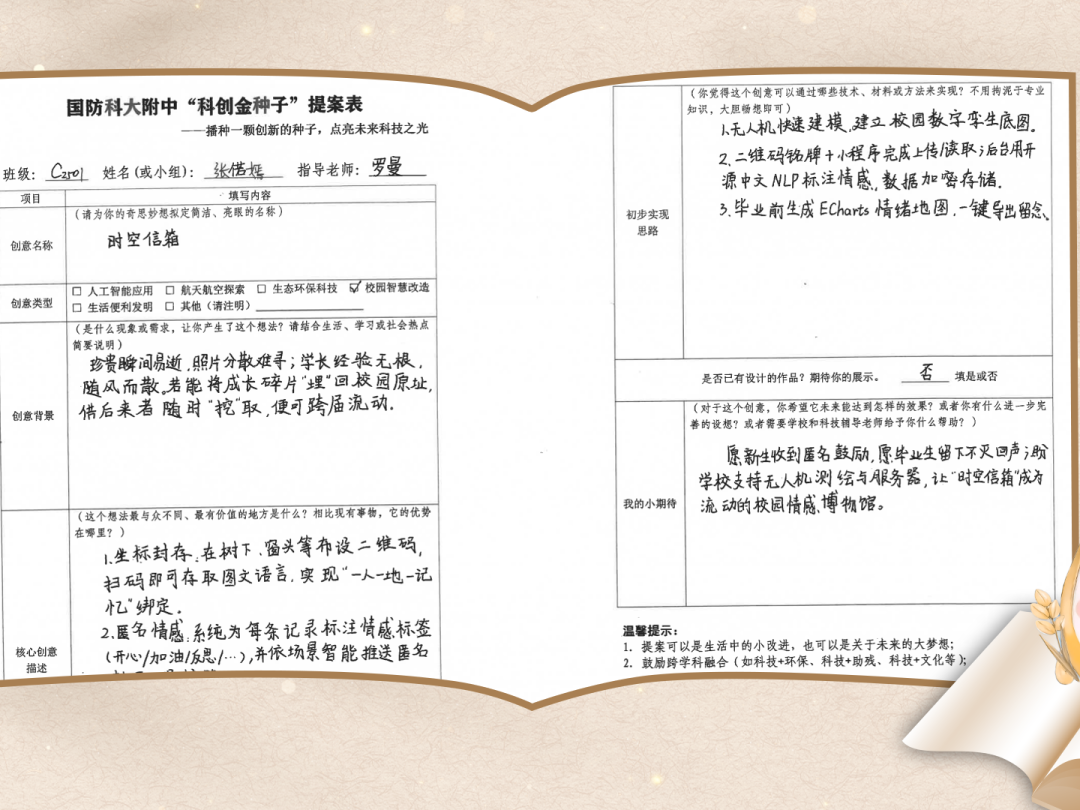 国防科大附中“科创金种子”提案表
——播种一颗创新的种子，点亮未来科技之光
班级： C2501 姓名(或小组)： 张偌嫣 指导老师： 罗曼
项目 填写内容
创意名称
（请为你的奇思妙想拟定简洁、亮眼的名称）
时空信箱
创意类型
□ 人工智能应用 □ 航天航空探索 □ 生态环保科技 ☑ 校园智慧改造
□ 生活便利发明 □ 其他（请注明）
创意背景
（是什么现象或需求，让你产生了这个想法？请结合生活、学习或社会热点
简要说明）
珍贵瞬间易逝，照片分散难寻；学长经验无根，
随风而散。若能将成长碎片“埋”回校园原址，
供后来者随时“挖”取，便可跨届流动．
核心创意
描述
（这个想法最与众不同、最有价值的地方是什么？相比现有事物，它的优势
在哪里？）
1.坐标封存：在树下、窗头等布设二维码，
扫码即可存取图文语言，实现“一人一地一记
忆”绑定。
2.匿名情感：系统为每条记录标注情感标签
(开心/加油/反思/…)，并依场景智能推送匿名
初步实现
思路
（你觉得这个创意可以通过哪些技术、材料或方法来实现？不用拘泥于专业
知识，大胆畅想即可）
1.无人机快速建模，建立校园数字孪生底图。
2.二维码铭牌＋小程序完成上传/读取；后台用开
源中文NLP标注情感，数据加密存储．
3.毕业前生成ECharts情绪地图，一键导出留念、
是否已有设计的作品？期待你的展示。 否 填是或否
我的小期待
（对于这个创意，你希望它未来能达到怎样的效果？或者你有什么进一步完
善的设想？或者需要学校和科技辅导老师给予你什么帮助？）
愿新生收到匿名鼓励，愿毕业生留下不灭回声；盼
学校支持无人机测绘与服务器，让“时空信箱”成为
流动的校园情感博物馆。
温馨提示：
1. 提案可以是生活中的小改进，也可以是关于未来的大梦想；
2. 鼓励跨学科融合（如科技+环保、科技+助残、科技+文化等）；